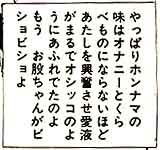 やっぱりホンナマの
味はオナニーとくら
べものにならないほど
あたしを興奮させ愛液
がまるでオシッコのよ
うにあふれでたのよ
もう　お股ちゃんがビ
ショビショよ